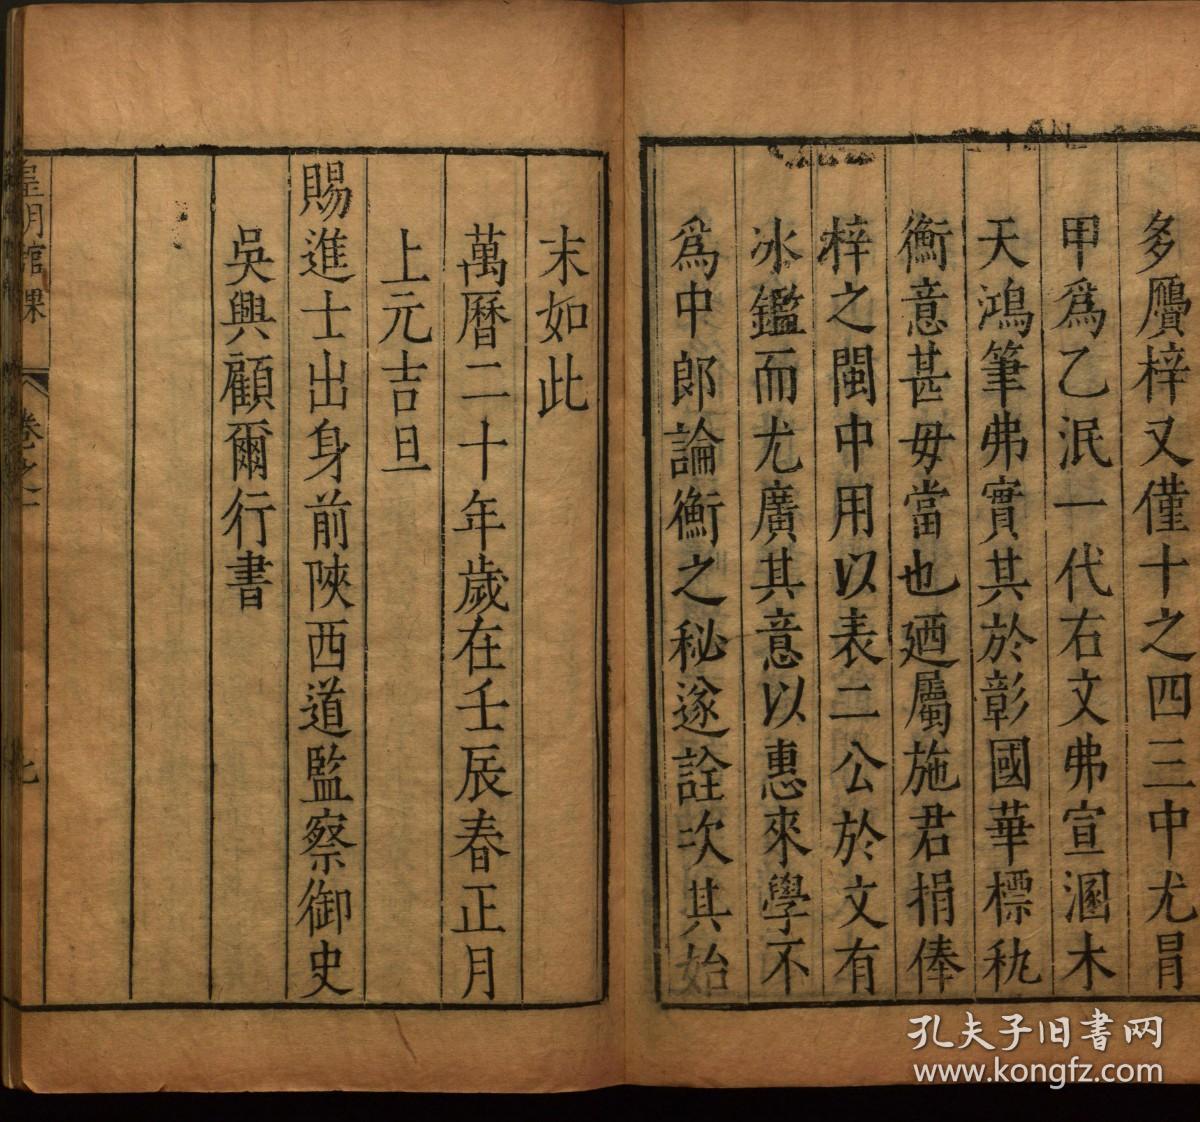 多贗梓又僅十之四三中尤冒
甲爲乙泯一代右文弗宣溷木
天鴻筆弗實其於彰國華標秇
衡意甚毋當也廼屬施君捐俸
梓之閩中用以表二公於文有
冰鑑而尤廣其意以惠來學不
爲中郎論衡之秘遂詮次其始
末如此
萬曆二十年歲在壬辰春正月
上元吉旦
賜進士出身前陝西道監察御史
吳興顧爾行書
皇明館課
卷之一
七
孔夫子旧书网
www.kongfz.com